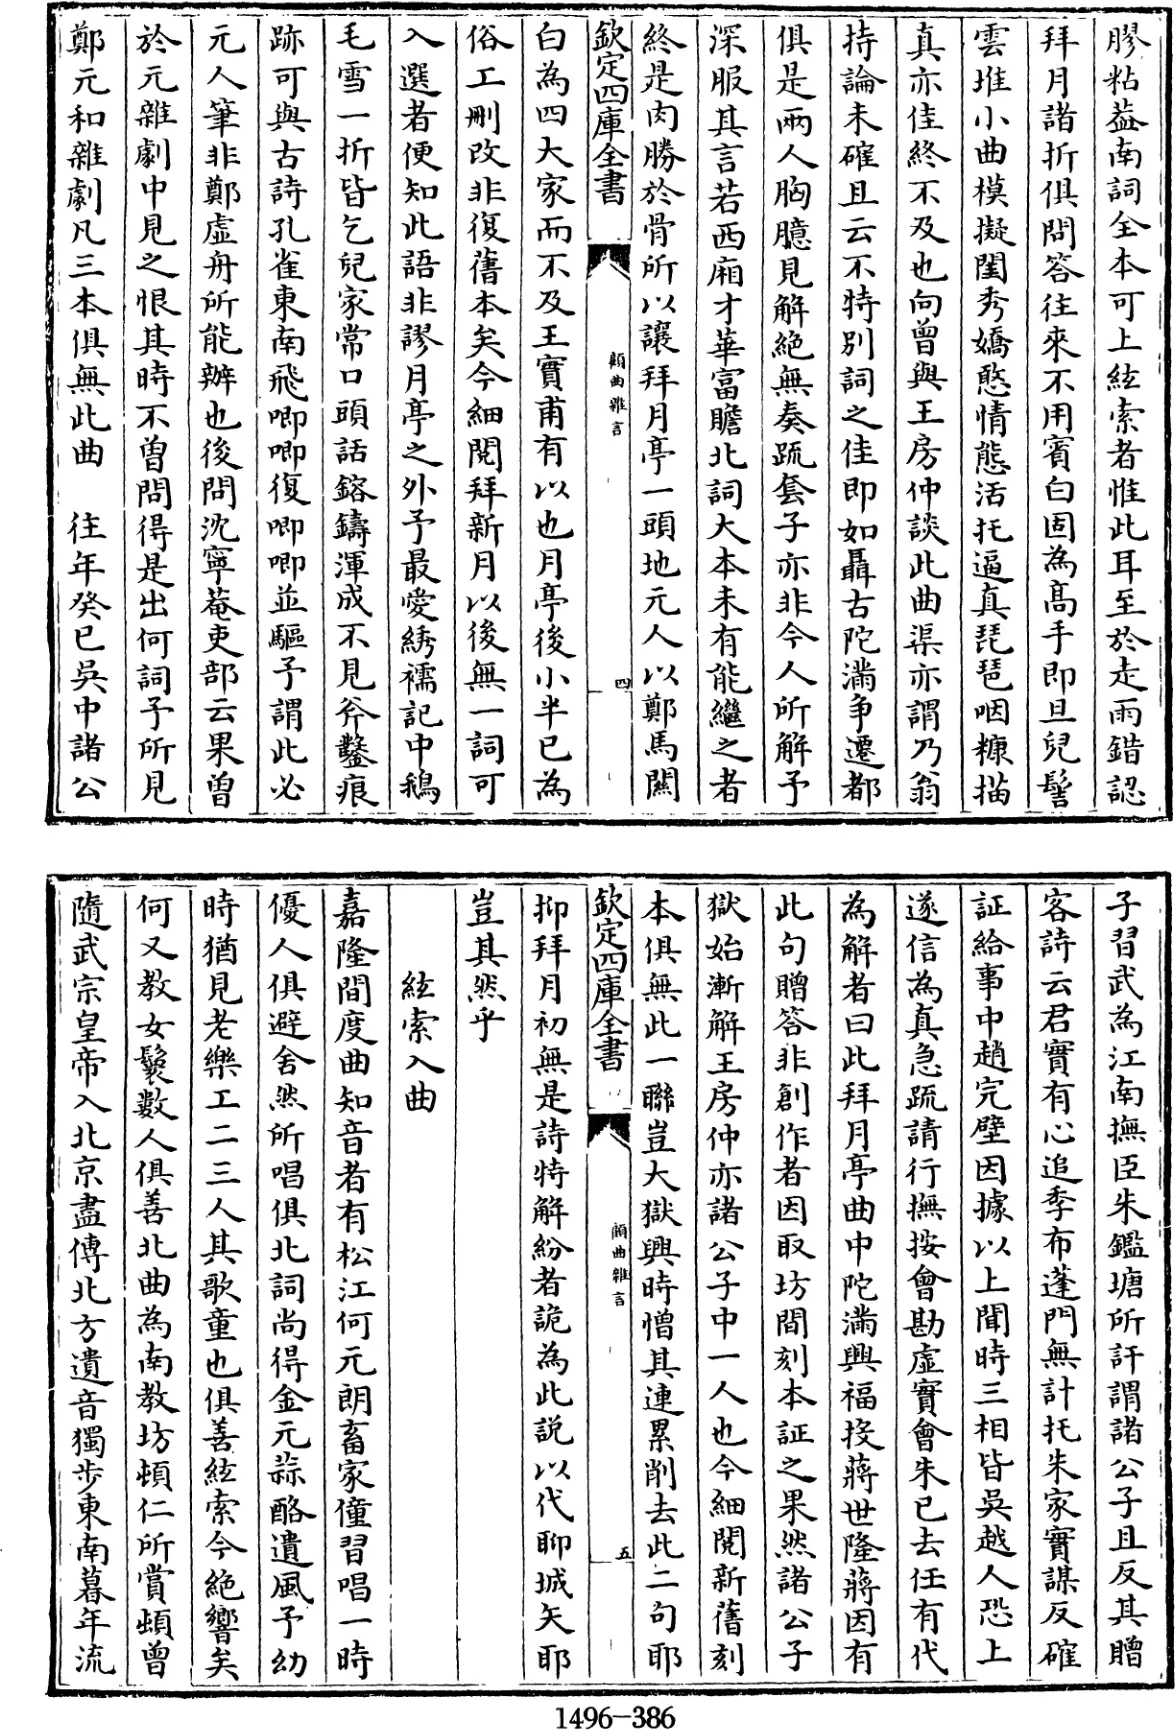 膠粘葢南詞全本可上絃索者惟此耳至於走雨錯認
拜月諸折俱問答往來不用賓白固為髙手即旦兒髻
雲堆小曲模擬閨秀嬌憨情態活托逼真琵琶咽糠描
真亦佳終不及也向曾與王房仲談此曲渠亦謂乃翁
持論未確且云不特别詞之佳即如聶古陀滿争遷都
俱是兩人胸臆見解絶無奏疏套子亦非今人所解予
深服其言若西廂才華富贍北詞大本未有能繼之者
終是肉勝於骨所以讓拜月亭一頭地元人以鄭馬關
欽定四庫全書
顧曲雜言
四
白為四大家而不及王實甫有以也月亭後小半已為
俗工刪改非復舊本矣今細閱拜新月以後無一詞可
入選者便知此語非謬月亭之外予最愛綉襦記中鵝
毛雪一折皆乞兒家常口頭話鎔鑄渾成不見斧鑿痕
跡可與古詩孔雀東南飛唧唧復唧唧並驅予謂此必
元人筆非鄭虛舟所能辦也後問沈寧菴吏部云果曽
於元雜劇中見之恨其時不曽問得是出何詞予所見
鄭元和雜劇凡三本俱無此曲　往年癸巳吳中諸公
子習武為江南撫臣朱鑑塘所訐謂諸公子且反其贈
客詩云君實有心追季布蓬門無計托朱家實謀反確
証給事中趙完璧因據以上聞時三相皆吳越人恐上
遂信為真急疏請行撫按會勘虛實會朱已去任有代
為解者曰此拜月亭曲中陀滿興福投蔣世隆蔣因有
此句贈答非創作者因取坊間刻本証之果然諸公子
獄始漸解王房仲亦諸公子中一人也今細閱新舊刻
本俱無此一聯豈大獄興時憎其連累削去此二句耶
欽定四庫全書
顧曲雜言
五
抑拜月初無是詩特解紛者詭為此説以代聊城矢耶
豈其然乎
絃索入曲
嘉隆間度曲知音者有松江何元朗畜家僮習唱一時
優人俱避舍然所唱俱北詞尚得金元蒜酪遺風予幼
時猶見老樂工二三人其歌童也俱善絃索今絶響矣
何又教女鬟數人俱善北曲為南教坊頓仁所賞頓曽
隨武宗皇帝入北京盡傳北方遺音獨步東南暮年流
1496-386